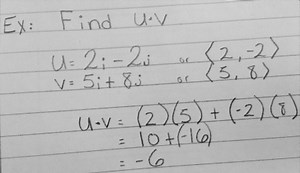 Ex: Find u·v
u = 2i - 2j or ⟨2, -2⟩
v = 5i + 8j or ⟨5, 8⟩
u·v = (2)(5) + (-2)(8)
= 10 + (-16)
= -6